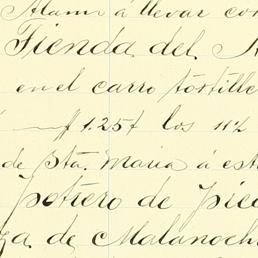 Alamo á llevar con
Tienda del
en el carro tortille
$1.25 f los 11½
de Sta. Maria á est
Potrero de Pied
za de Malanoch